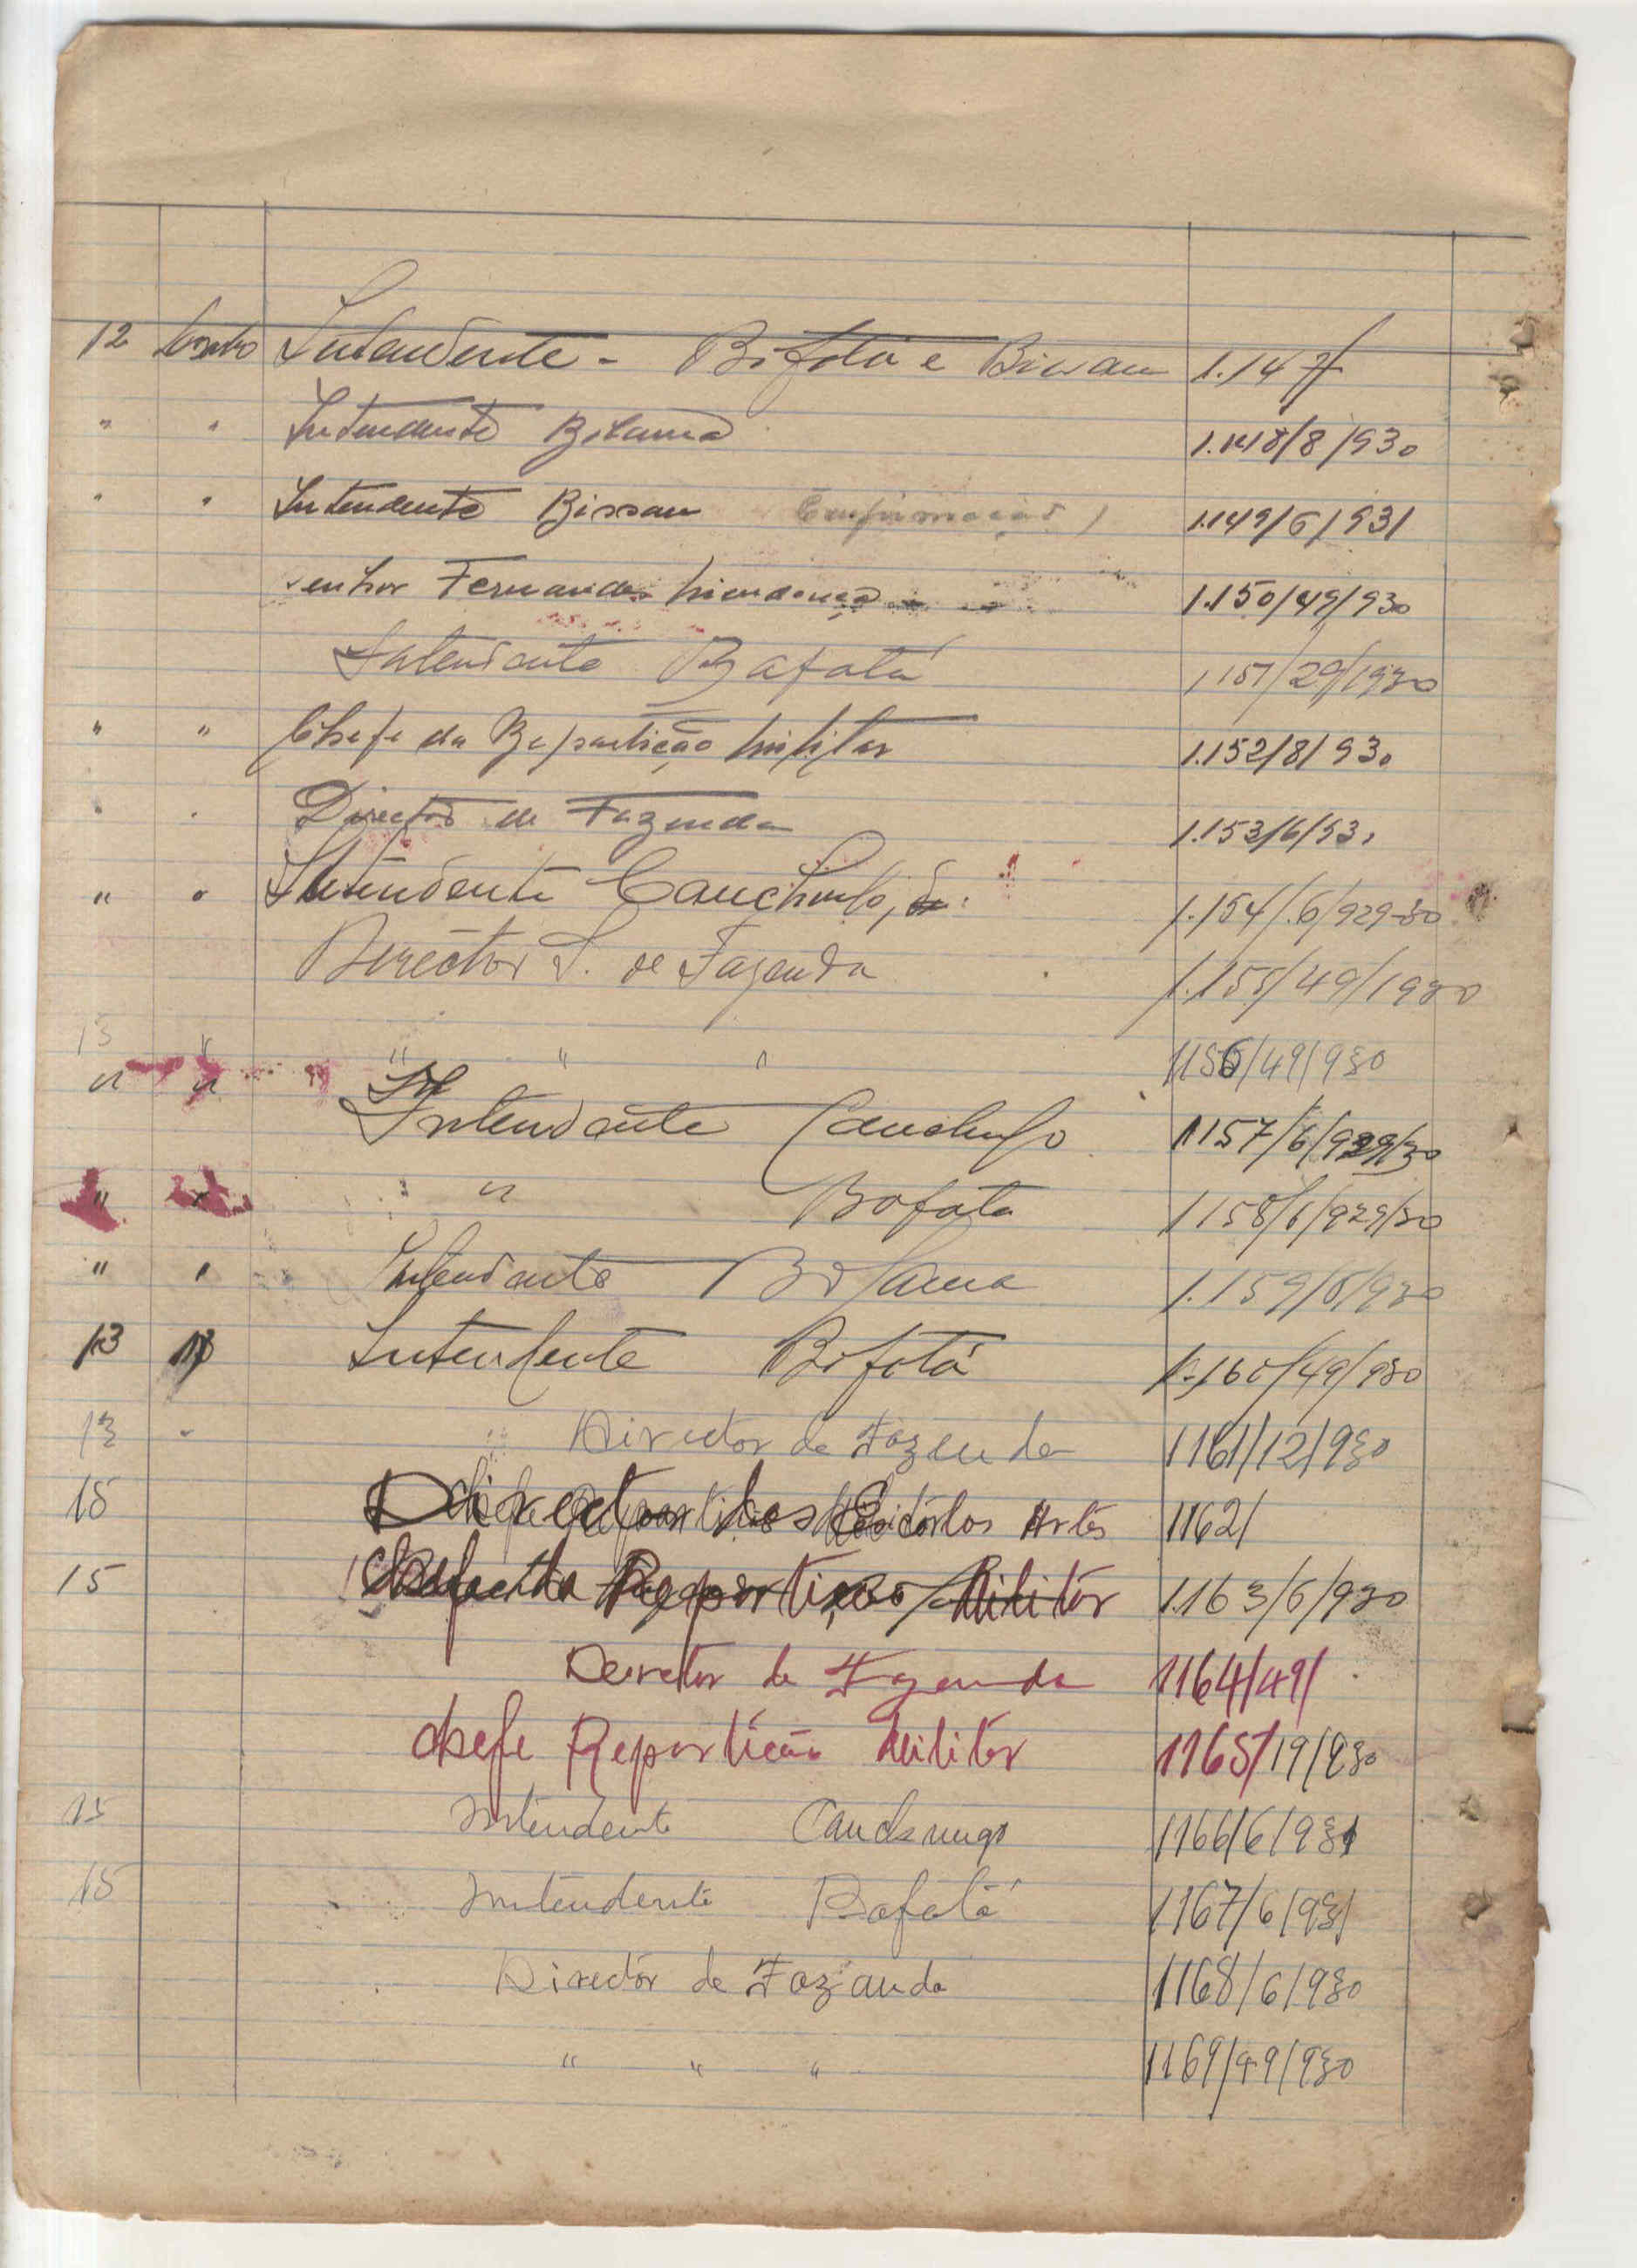 12 Intendente - Bafatá e Bissau 1.147
" " Intendente Bolama 1.148/8/930
" " Intendente Bissau 1.149/6/931
senhor Fernandes Mendonça 1.150/49/930
Intendente Bafatá 1151/29/1930
" " Chefe da Repartição Militar 1.152/8/930
" " Director de Fazenda 1.153/6/93
" " Intendente 1.154/.6/929-30
Director S. de Fazenda 1.155/49/1930
13 " " " " 1156/49/930
" " Intendente 1157/6/929/30
" " " Bafata 1158/6/929/30
" " Intendante Bolama 1.159/6/930
13 Intendente Bafatá 1.160/49/930
13 - Director da Fazenda 1161/12/930
15 Artes 1162/
15 Chefe da Repartição Militár 1.163/6/930
Deretor de Fazenda 1164/49/
Chefe Repartição Militár 1165/19/930
15 Intendente 1166/6/931
15 Intendente Bafatá 1167/6/931
Directór de Fazanda 1168/6/930
" " " 1169/49/930